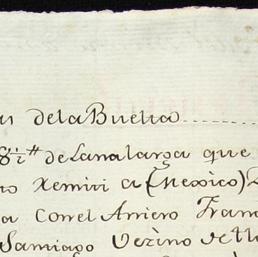 dela Buelta
de Lana larga que
Xemiri a (Mexico)
a Conel Arriero Fran
Santiago Vezino de